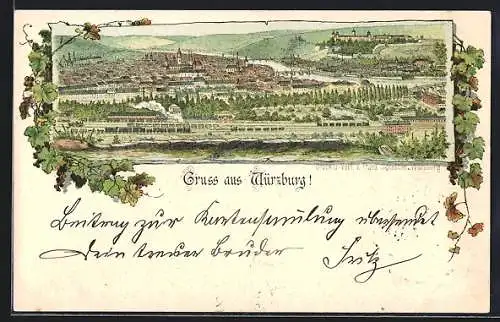 Gruss aus Würzburg!
Beitrag zur Kartensammlung übersendet
Dein treuer Bruder Fritz